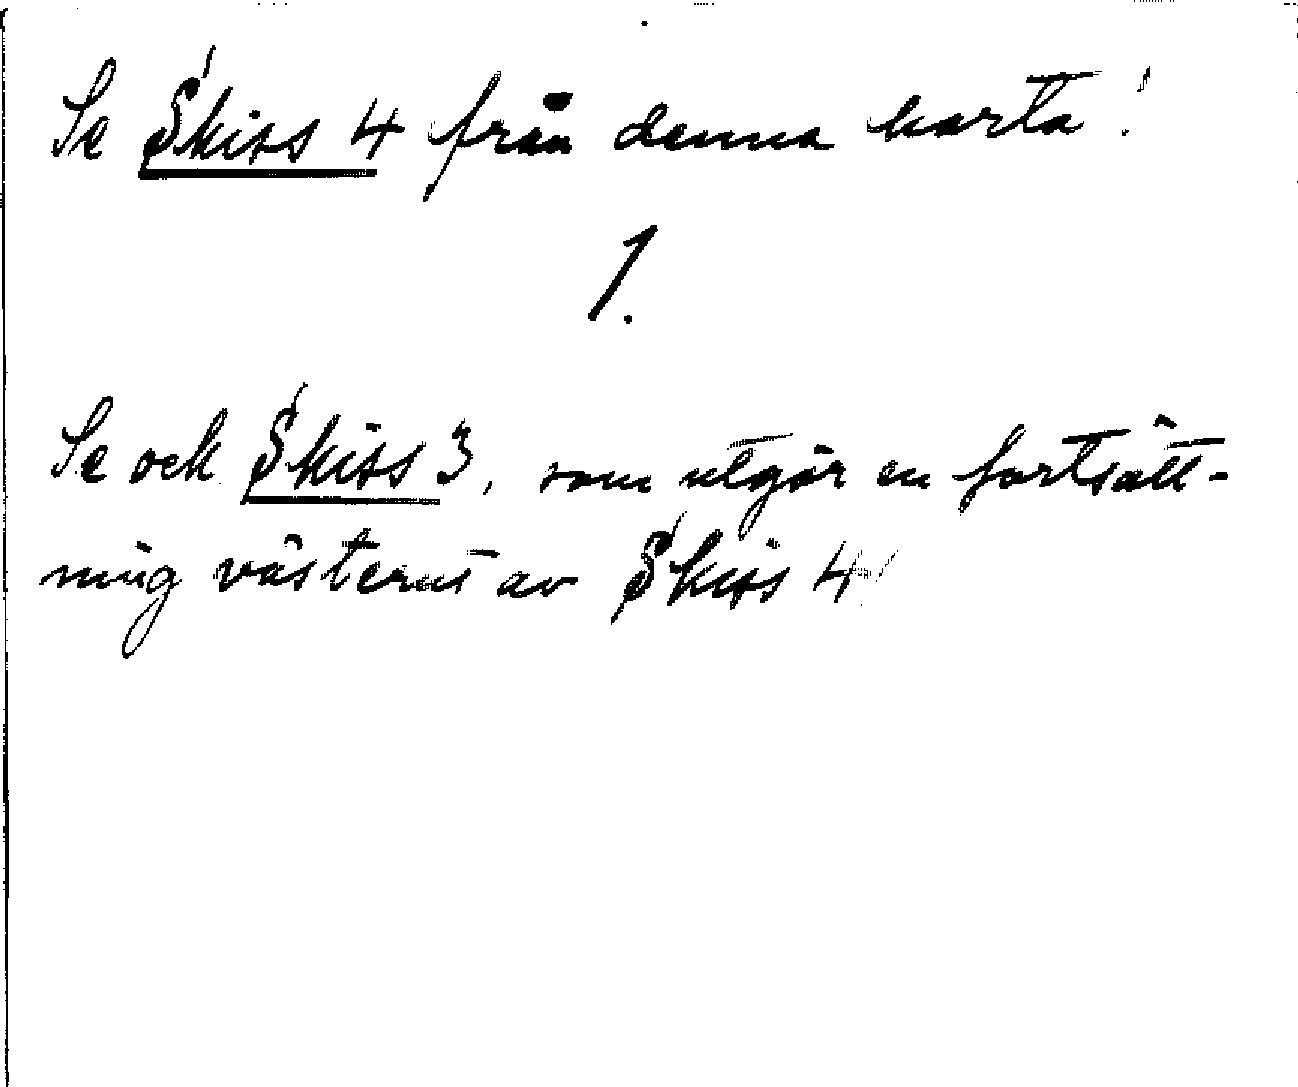 Se Skiss 4 från denna karta!
1.
Se ock Skiss 3, som utgör en fortsätt-
ning västerut av Skiss 4